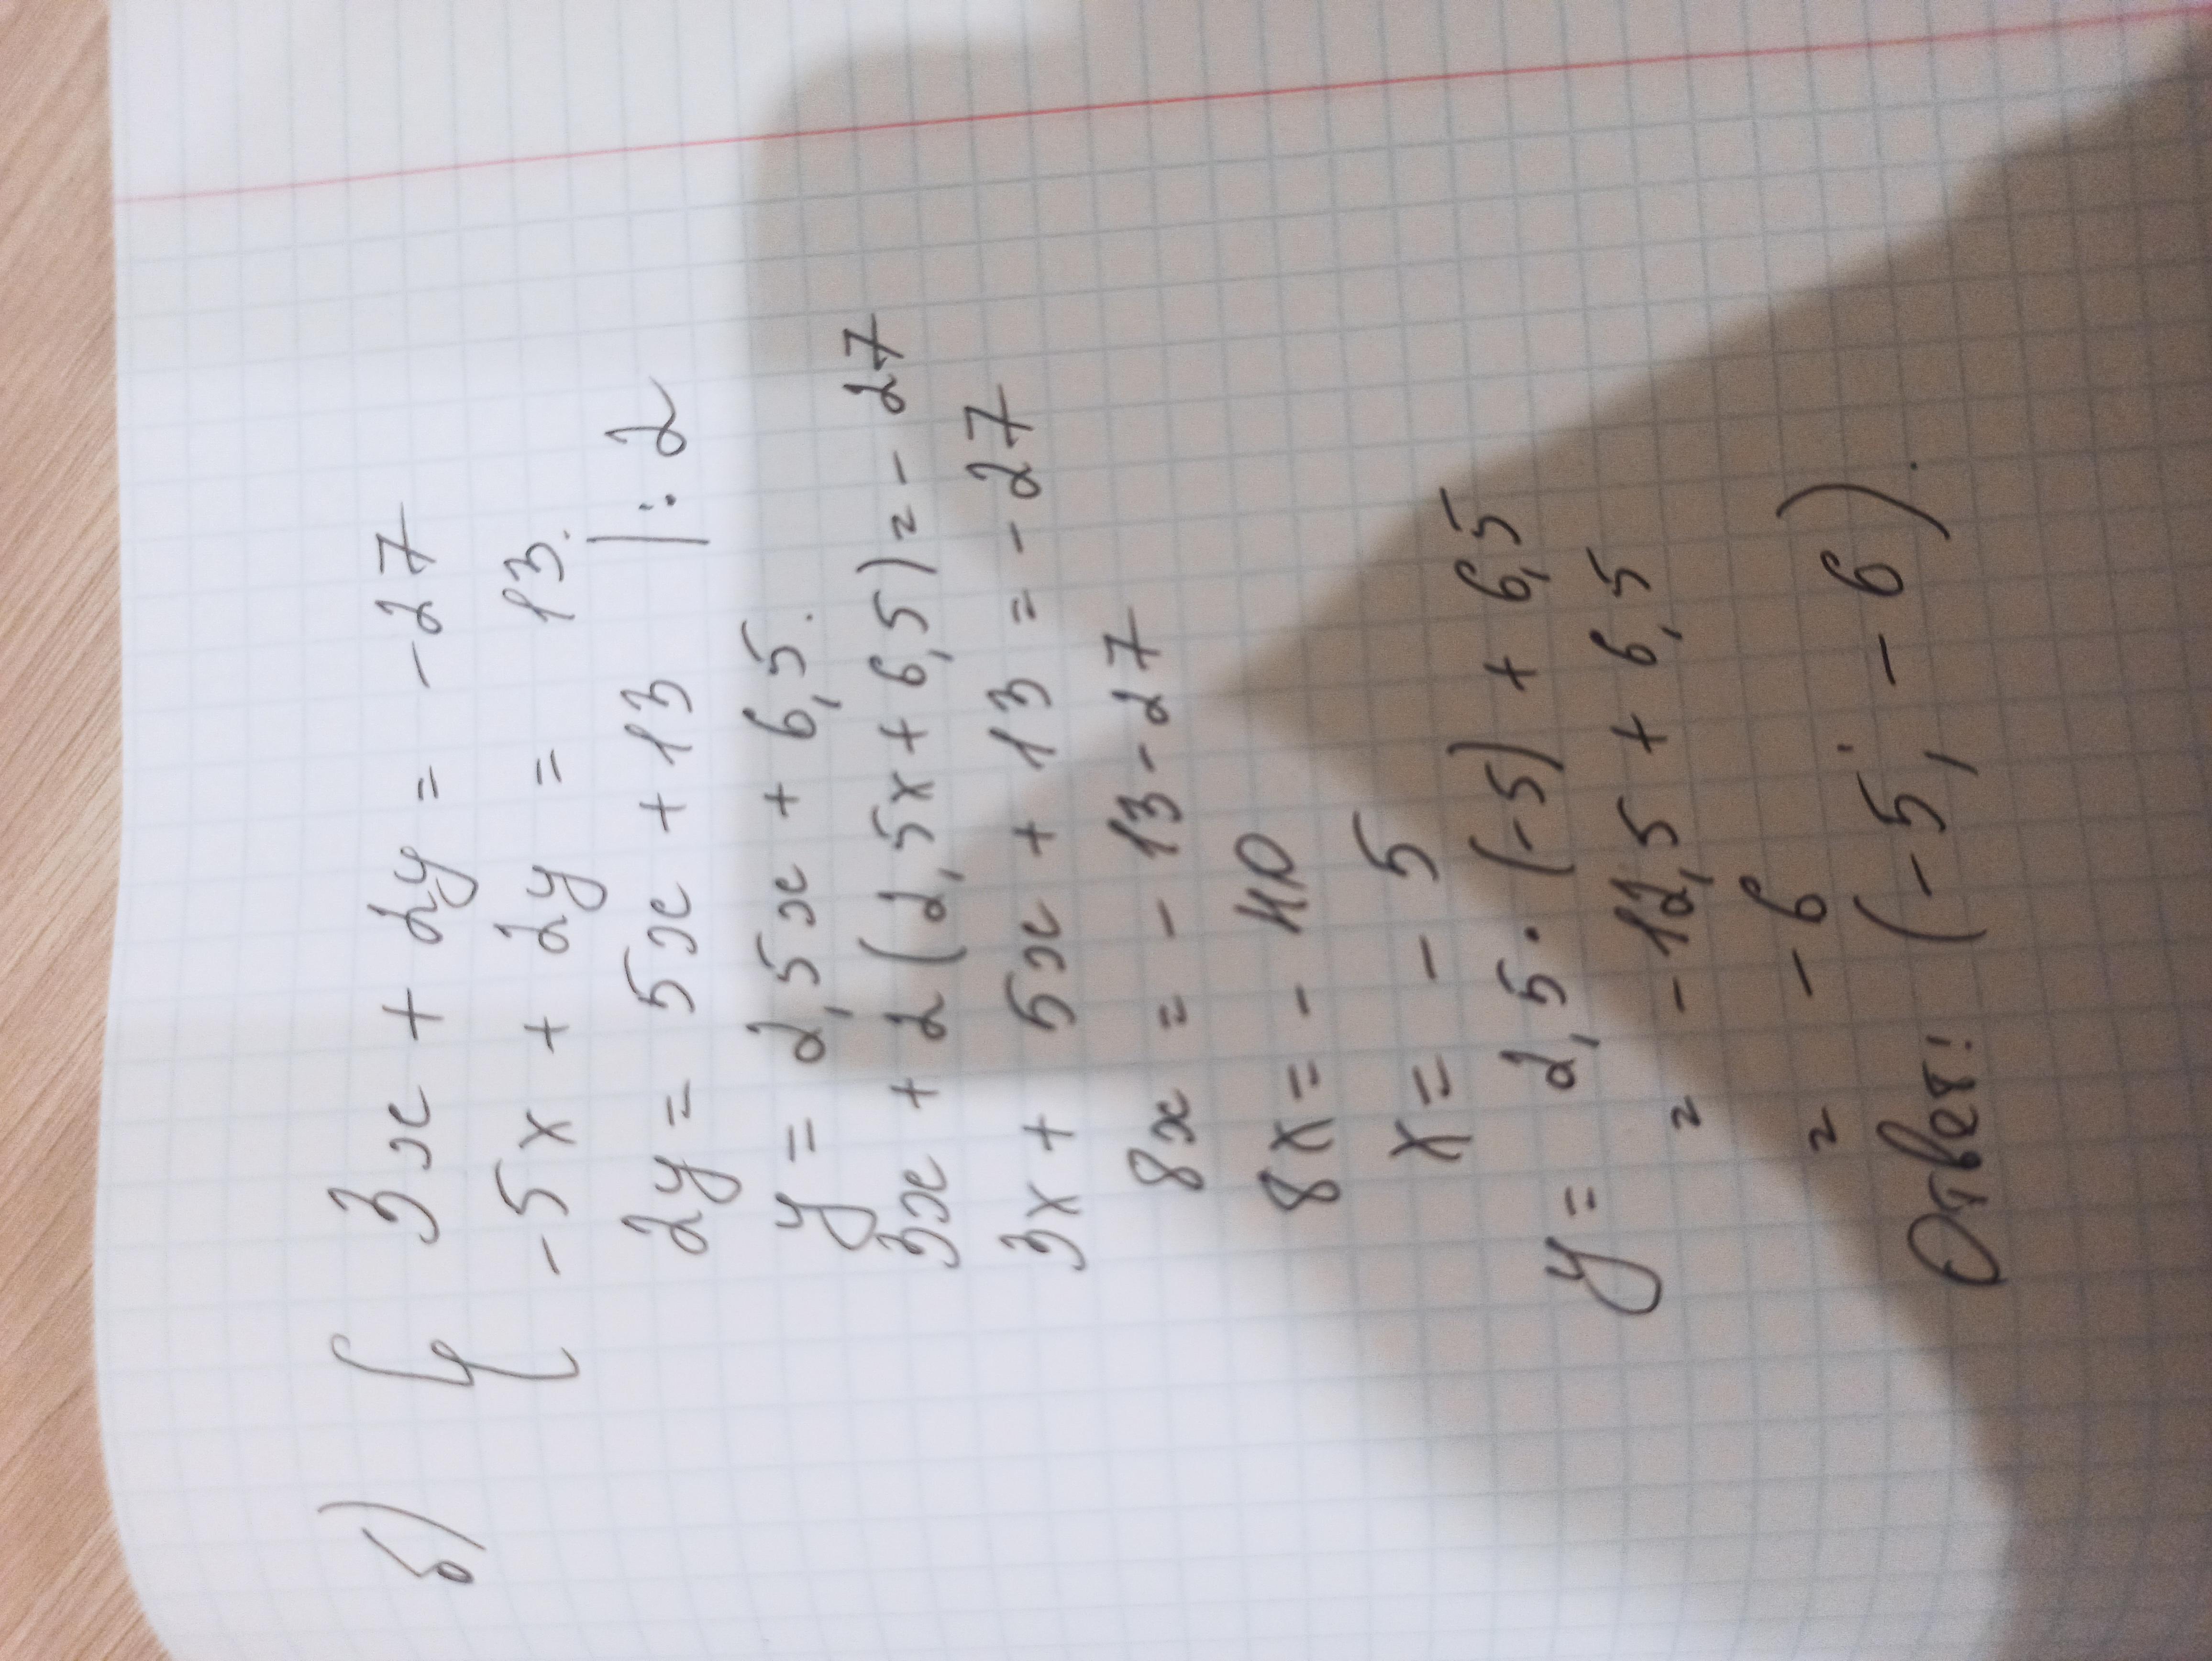 б) { 3x + 2y = -27
-5x + 2y = 13.
2y = 5x + 13 | : 2
y = 2,5x + 6,5.
3x + 2(2,5x + 6,5) = - 27
3x + 5x + 13 = - 27
8x = - 13 - 27
8x = - 40
x = - 5
y = 2,5 · (-5) + 6,5
= - 12,5 + 6,5
= - 6
Ответ: (-5; - 6).